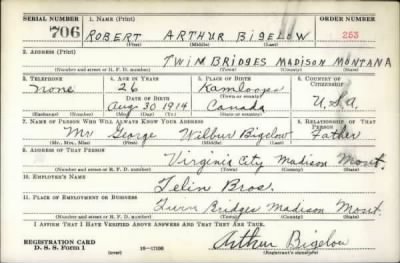 SERIAL NUMBER 1. NAME (Print) ORDER NUMBER
706 ROBERT ARTHUR BIGELOW 263
(First) (Middle) (Last)
2. ADDRESS (Print)
TWIN BRIDGES MADISON MONTANA
(Number and street or R. F. D. number) (Town) (County) (State)
3. TELEPHONE 4. AGE IN YEARS 5. PLACE OF BIRTH 6. COUNTRY OF CITIZENSHIP
None 26 Kamloops
DATE OF BIRTH (Town or county)
Aug 30 1914 Canada U.S.A
(Exchange) (Number) (Mo.) (Day) (Yr.) (State or country)
7. NAME OF PERSON WHO WILL ALWAYS KNOW YOUR ADDRESS 8. RELATIONSHIP OF THAT PERSON
Mr George Wilbur Bigelow Father
(Mr., Mrs., Miss) (First) (Middle) (Last)
9. ADDRESS OF THAT PERSON
Virginia City Madison Mont.
(Number and street or R. F. D. number) (Town) (County) (State)
10. EMPLOYER'S NAME
Bros.
11. PLACE OF EMPLOYMENT OR BUSINESS
Twin Bridges Madison Mont.
(Number and street or R. F. D. number) (Town) (County) (State)
I AFFIRM THAT I HAVE VERIFIED ABOVE ANSWERS AND THAT THEY ARE TRUE.
REGISTRATION CARD
D. S. S. Form 1 (over) Arthur Bigelow
(Registrant's signature)